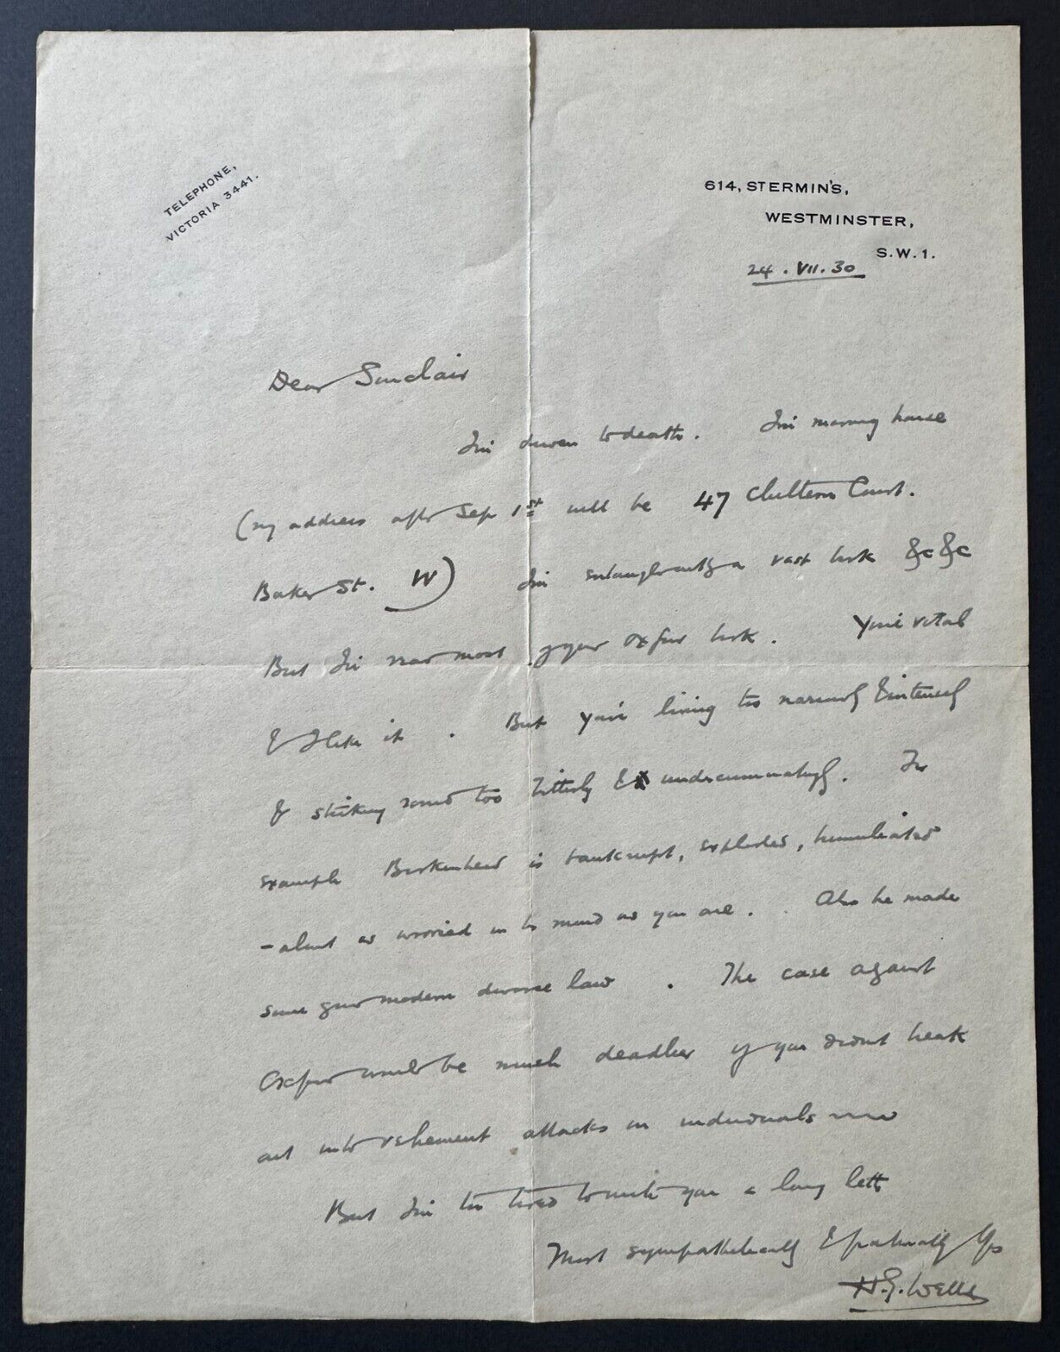 TELEPHONE,
VICTORIA 3441.
614, ST ERMIN'S,
WESTMINSTER,
S.W.1.
24. VII. 30
Dear Sinclair
I'm driven to death. I'm moving house
(my address after Sep 1st will be 47 Chiltern Court.
Baker St. W) I'm a vast book &c &c
But I've read most of your Oxford book. You're vital
& I like it. But you're living too narrowly & intensely
& striking round too bitterly & undiscriminatingly. For
example Birkenhead is bankrupt, exploded, humiliated
- about as worried in his mind as you are. Also he made
some good modern divorce law. The case against
Oxford would be much deadlier if you didnt break
out into vehement attacks on individuals
But I'm too tired to write you a long letter
Most sympathetically & fraternally Yrs
H.G. Wells